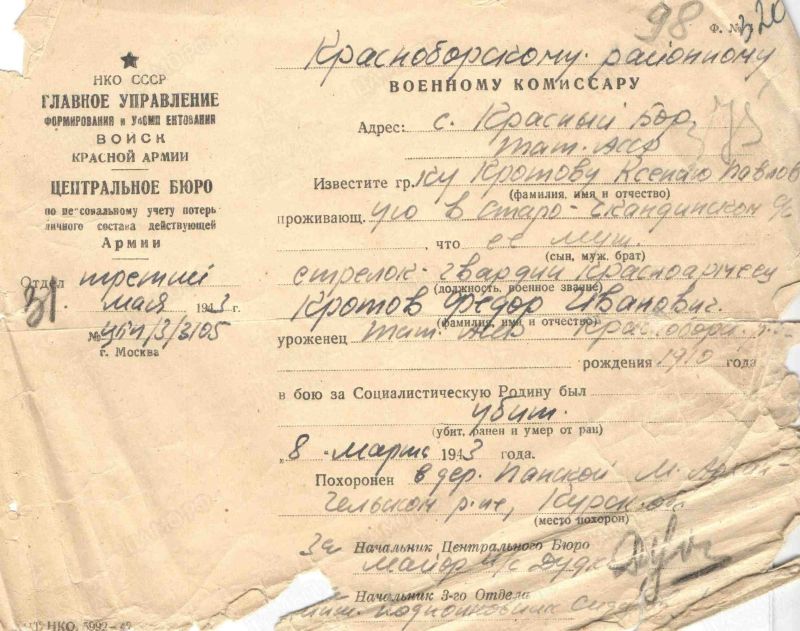 98
320
Ф. №
НКО СССР
ГЛАВНОЕ УПРАВЛЕНИЕ
ФОРМИРОВАНИЯ И УКОМПЛЕКТОВАНИЯ
ВОЙСК
КРАСНОЙ АРМИИ
ЦЕНТРАЛЬНОЕ БЮРО
по персональному учету потерь
личного состава действующей
Армии
Отдел третий
31 мая 1943 г.
г. Москва
Красноборскому районному
ВОЕННОМУ КОМИССАРУ
Адрес: с. Красный Бор,
Тат. Асср
Известите гр. ку Кротову Ксению Павлов
(фамилия, имя и отчество)
проживающ. ую в Старо-
, что ее муж.
(сын, муж, брат)
стрелок-гвардии Красноармеец
(должность, военное звание)
Кротов Федор Иванович.
(фамилия, имя и отчество)
уроженец Тат. Асср
рождения 1910 года
в бою за Социалистическую Родину был
убит.
(убит, ранен и умер от ран)
„8 марта 1943 года.
Похоронен в дер. Панской М. Архан
гельском р-не, Курской
(место похорон)
Начальник Центрального Бюро
майор
Начальник 3-го Отдела
НКО, 5992—42